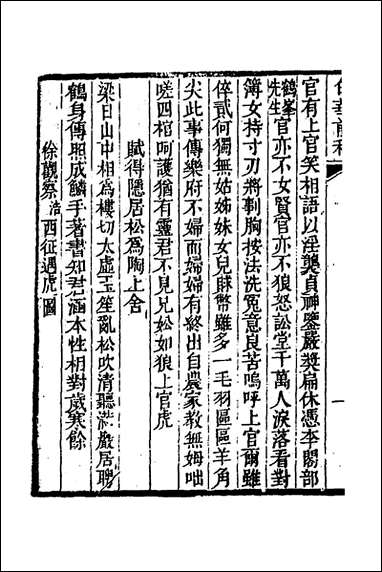 官有上官笑相語以淫襲貞神鑒嚴獎扁休憑李閣部
鶴峯先生官亦不女賢官亦不狼怒訟堂千萬人淚落看對
簿女持寸刃將剚胸按法洗冤意良苦嗚呼上官爾雖
倅貳何獨無姑姊妹女兒賕幣雖多一毛羽區區羊角
尖此事傳樂府不婦而婦婦有終出自農家教無姆咄
嗟四棺呵護猶有靈君不見兒妐如狼上官虎
賦得隱居松為陶上舍
梁日山中相為樓切太虛玉笙亂松吹清聽滋巖居聘
鶴身傳照成麟手著書知君涵本性相對歲寒餘
徐觀察浩西征遇虎圖